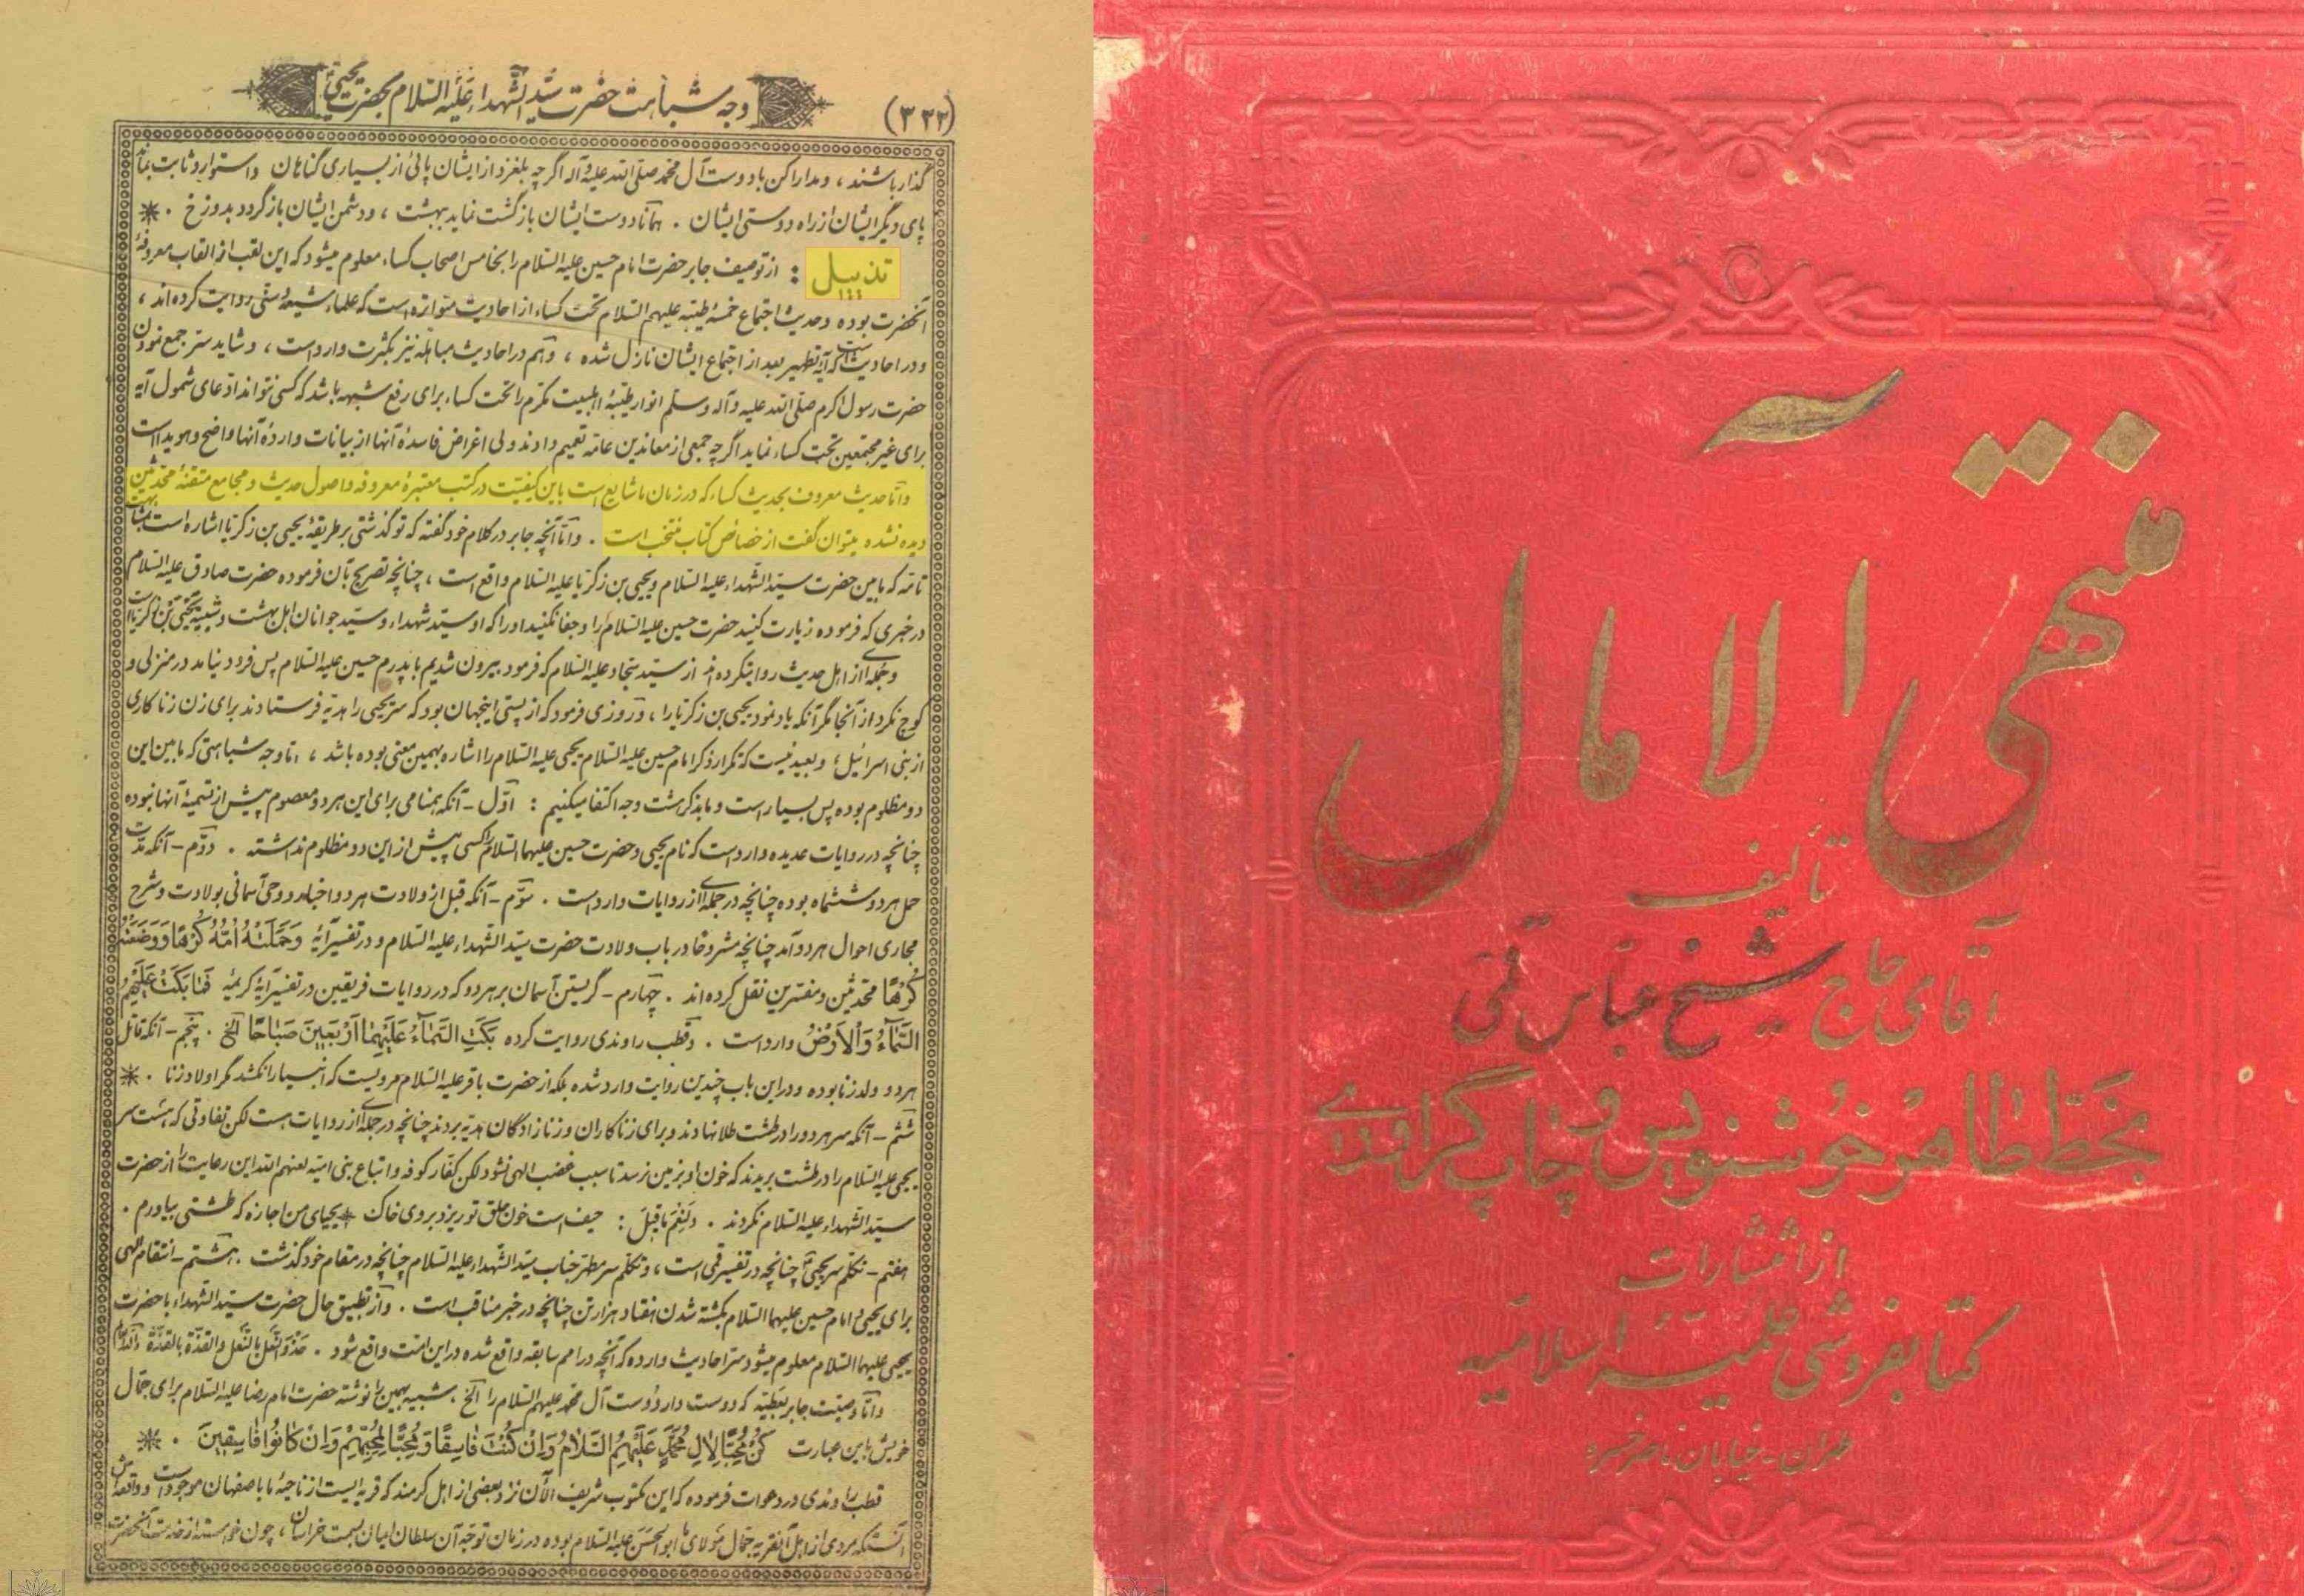 (۳۳۲)
وجه شباهت حضرت سیّد الشّهداء عَلَیْهِ السّلام بحضرت یحیی
گذار باشند ، و مدارا کن با دوست آل محمّد صلّی الله علیه و آله اگر چه بلغزد از ایشان پائی از بسیاری گناهان و استوار و ثابت بماند
پای دیگر ایشان از راه دوستی ایشان . همانا دوست ایشان بازگشت نماید ببهشت ، و دشمن ایشان بازگردد بدوزخ . *
تذییل : از توصیف جابر حضرت امام حسین علیه السلام را بخامس اصحاب کساء معلوم میشود که این لقب از القاب معروفهٔ
آنحضرت بوده و حدیث اجتماع خمسهٔ طیّبه علیهم السّلام تحت کساء از احادیث متواتره است که علماء شیعه و سنّی روایت کرده‌اند ،
و در احادیث است که آیهٔ تطهیر بعد از اجتماع ایشان نازل شده ، و هم در احادیث مباهله نیز بکثرت وارد است ، و شاید سرّ جمع نمودن
حضرت رسول اکرم صلّی الله علیه و آله و سلّم انوار طیّبهٔ اهلبیت مکرّم را تحت کساء برای رفع شبهه باشد که کسی نتواند ادّعای شمول آیه
برای غیر مجتمعین تحت کساء نماید اگر چه جمعی از معاندین عامّه تعمیم دادند ولی اغراض فاسدهٔ آنها از بیانات واردهٔ آنها واضح و هویدا است
و امّا حدیث معروف بحدیث کساء که در زمان ما شایع است باین کیفیّت در کتب معتبرهٔ معروفه و اصول حدیث و مجامع متقنهٔ محدّثین
دیده نشده میتوان گفت از خصائص کتاب منتخب است . و امّا آنچه جابر در کلام خود گفته که تو گذشتی بر طریقهٔ یحیی بن زکریّا اشاره است بمشابهت
تامّه که مابین حضرت سیّد الشّهداء علیه السّلام و یحیی بن زکریّا علیه السّلام واقع است ، چنانچه تصریح بآن فرموده حضرت صادق علیه السّلام
در خبری که فرموده زیارت کنید حضرت حسین علیه السّلام را و جفا نکنید او را که او سیّد شهداء و سیّد جوانان اهل بهشت و شبیه یحیی بن زکریّا است
و جمله‌ای از اهل حدیث روایت کرده‌اند از سیّد سجّاد علیه السّلام که فرمود بیرون شدیم با پدرم حسین علیه السّلام پس فرود نیامد در منزلی و
کوچ نکرد از آنجا مگر آنکه یاد نمود یحیی بن زکریّا را ، و روزی فرمود که از پستی اینجهان بود که سر یحیی را هدیّه فرستادند برای زن زناکاری
از بنی اسرائیل ؛ و بعید نیست که تکرار ذکر امام حسین علیه السّلام یحیی علیه السّلام را اشاره بهمین معنی بوده باشد ، امّا وجه شباهتی که مابین این
دو مظلوم بوده پس بسیار است و ما بذکر هشت وجه اکتفا میکنیم : اوّل - آنکه همنامی برای این هر دو معصوم پیش از تسمیهٔ آنها نبوده
چنانچه در روایات عدیده وارد است که نام یحیی و حضرت حسین علیهما السّلام را کسی پیش از این دو مظلوم نداشته . دوّم - آنکه مدّت
حمل هر دو ششماه بوده چنانچه در جمله‌ای از روایات وارد است . سوّم - آنکه قبل از ولادت هر دو اخبار و وحی آسمانی بولادت و شرح
مجاری احوال هر دو آمد چنانچه مشروحا در باب ولادت حضرت سیّد الشّهداء علیه السّلام و در تفسیر آیه وَحَمَلَتْهُ اُمُّهُ کُرْهًا وَ وَضَعَتْهُ
کُرْهًا محدّثین و مفسّرین نقل کرده‌اند . چهارم - گریستن آسمان بر هر دو که در روایات فریقین در تفسیر آیهٔ کریمهٔ فَمٰا بَکَتْ عَلَیْهِمُ
السَّمٰآءُ وَ الْاَرْضُ وارد است . و قطب راوندی روایت کرده بَکَتِ السَّمٰآءُ عَلَیْهِمٰا اَرْبَعینَ صَبٰاحًا الخ . پنجم - آنکه قاتل
هر دو ولد زنا بوده و در این باب چندین روایت وارد شده بلکه از حضرت باقر علیه السّلام مرویست که انبیا را نکشد مگر اولاد زنا . *
ششم - آنکه سر هر دو را در طشت طلا نهادند و برای زناکاران و زنازادگان هدیّه بردند چنانچه در جمله‌ای از روایات هست لکن تفاوتی که هست سر
یحیی علیه السّلام را در طشت بریدند که خون او بزمین نرسد تا سبب غضب الهی نشود لکن کفّار کوفه و اتباع بنی امیّه لعنهم الله این رعایت را از حضرت
سیّد الشّهداء علیه السّلام نکردند . وَ لَنِعْمَ مٰا قیلَ : حیف است خون حلق تو ریزد بروی خاک * یحیای من اجازه که طشتی بیاورم .
هفتم - تکلّم سر یحیی چنانچه در تفسیر قمی است ، و تکلّم سر مطهّر جناب سیّد الشّهداء علیه السّلام چنانچه در مقام خود گذشت . هشتم - انتقام الهی
برای یحیی و امام حسین علیهما السّلام بکشته شدن هفتاد هزار تن چنانچه در خبر مناقب است . و از تطبیق حال حضرت سیّد الشّهداء با حضرت
یحیی علیهما السّلام معلوم میشود سرّ احادیث وارده که آنچه در امم سابقه واقع شده در این امّت واقع شود . حَذْوَ النَّعْلِ بِالنَّعْلِ وَ الْقُذَّةِ بِالْقُذَّةِ
و امّا وصیّت جابر بعطیّه که دوست دار دوست آل محمّد علیهم السّلام را الخ ، شبیه بهمین را نوشته حضرت امام رضا علیه السّلام برای جمّال
خویش باین عبارت کُنْ مُحِبًّا لِاٰلِ مُحَمَّدٍ عَلَیْهِمُ السَّلٰامُ وَ اِنْ کُنْتَ فٰاسِقًا وَ مُحِبًّا لِمُحِبّیهِمْ وَ اِنْ کٰانُوا فٰاسِقینَ . *
قطب راوندی در دعوات فرموده که این مکتوب شریف الآن نزد بعضی از اهل کرمند که قریه ایست از ناحیهٔ ما باصفهان موجود است و واقعه‌اش
آنستکه مردی از اهل آنقریه جمّال مولای ما ابو الحسن علیه السّلام بوده در زمان توجّه آن سلطان ایمان بسمت خراسان ، چون خواسته از خدمت آنحضرت
منتهی الآمال
تألیف
آقای حاج شیخ عباس قمی
بخط طاهر خوشنویس و چاپ گراوری
از انتشارات
کتابفروشی علمیّه اسلامیّه
طهران - خیابان ناصرخسرو